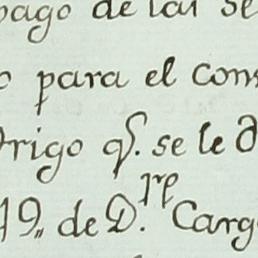 pago de las se
o para el cons
trigo q.e se le d
19,, de D.n jrp Carg